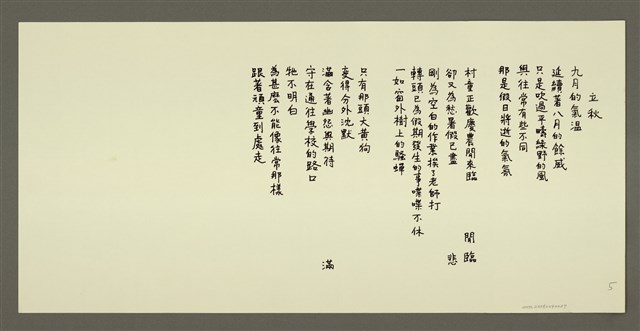 立秋
九月的氣溫
延續著八月的餘威
只是吹過平疇綠野的風
與往常有些不同
那是假日將逝的氣氛
村童正歡慶農閒來臨
卻又為愁暑假已盡
剛為空白的作業挨了老師打
轉頭已為假期發生的事喋喋不休
一如窗外樹上的騷蟬
只有那頭大黃狗
变得分外沈默
滿含著幽怨與期待
守在通往學校的路口
牠不明白
為甚麼不能像往常那樣
跟著頑童到處走
閒 臨
悲
滿
5